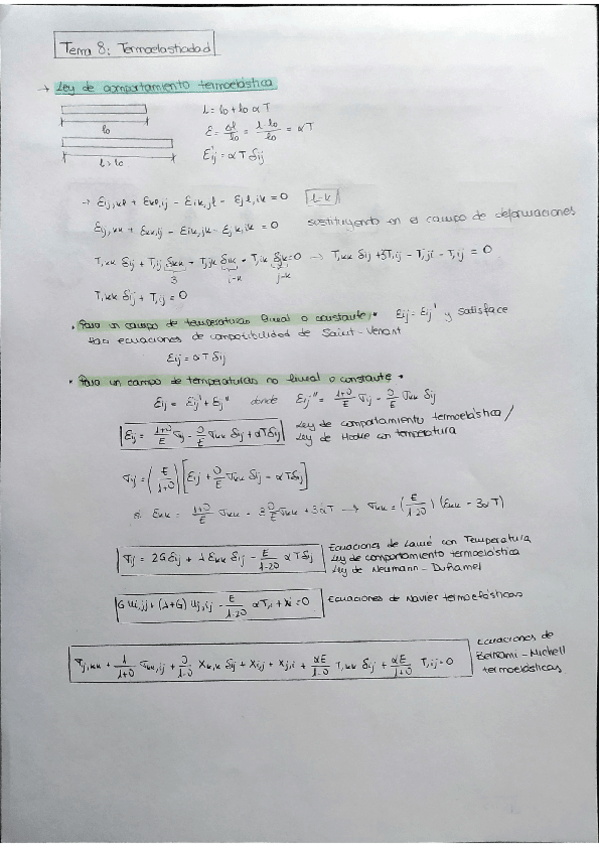 Tema 8: Termoelasticidad
→ Ley de comportamiento termoelástico
l = l₀ + l₀ α T
l₀
ε = Δl/l₀ = (l - l₀)/l₀ = αT
l > l₀
ε'ij = α T δij
→ εij,kl + εkl,ij - εik,jl - εjl,ik = 0 l=k
εij,kk + εkk,ij - εik,jk - εjk,ik = 0 sustituyendo en el campo de deformaciones
T,kk δij + T,ij δkk - T,jk δik - T,ik δjk = 0 → T,kk δij + 3T,ij - T,ji - T,ij = 0
3 i=k j=k
T,kk δij + T,ij = 0
• Para un campo de temperaturas lineal o constante: εij = εij' y satisface
las ecuaciones de compatibilidad de Saint-Venant
εij = α T δij
• Para un campo de temperaturas no lineal o constante •
εij = εij' + εij'' donde εij'' = (1+υ)/E σij - υ/E σkk δij
εij = (1+υ)/E σij - υ/E σkk δij + αTδij Ley de comportamiento termoelástico /
Ley de Hooke con temperatura
σij = (E/(1+υ)) [εij + υ/E σkk δij - αTδij]
εkk = (1+υ)/E σkk - 3 υ/E σkk + 3αT → σkk = (E/(1-2υ)) (εkk - 3αT)
σij = 2Gεij + λ εkk δij - E/(1-2υ) αTδij Ecuaciones de Lamé con Temperatura
Ley de comportamiento termoelástico
Ley de Neumann - Duhamel
G ui,jj + (λ+G) uj,ij - E/(1-2υ) αT,i + Xi = 0 Ecuaciones de Navier termoelásticas
σij,kk + 1/(1+υ) σkk,ij + υ/(1-υ) Xk,k δij + Xi,j + Xj,i + αE/(1-υ) T,kk δij + αE/(1+υ) T,ij = 0 Ecuaciones de
Beltrami - Michell
termoelásticas